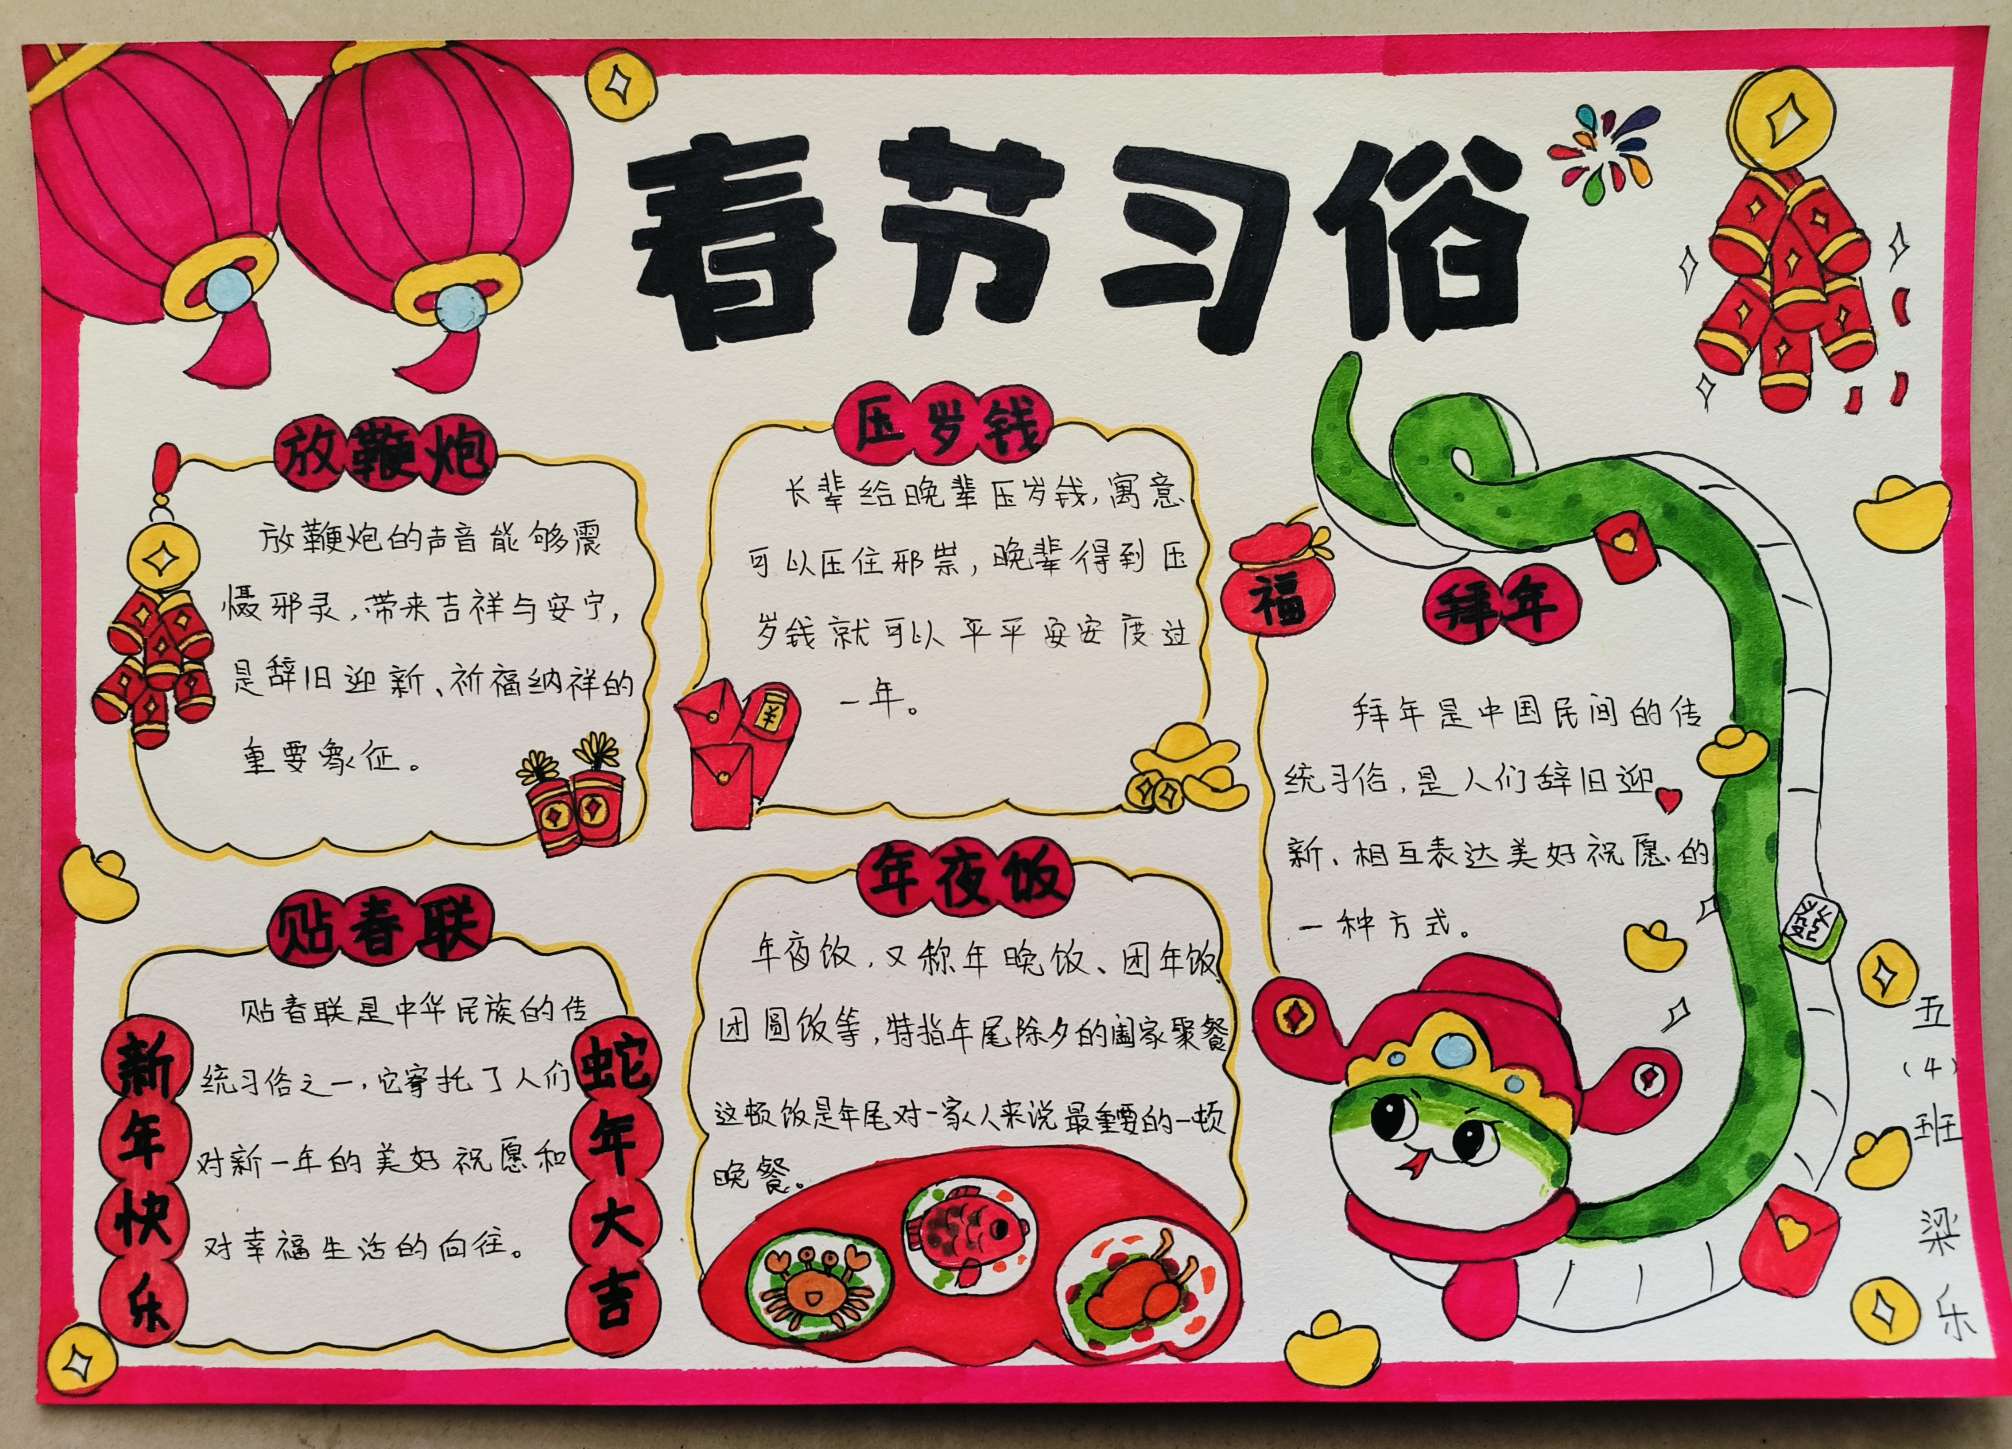 春节习俗
放鞭炮
放鞭炮的声音能够震
慑邪灵,带来吉祥与安宁,
是辞旧迎新、祈福纳祥的
重要象征。
压岁钱
长辈给晚辈压岁钱,寓意
可以压住邪祟,晚辈得到压
岁钱就可以平平安安度过
一年。
¥
福
拜年
拜年是中国民间的传
统习俗,是人们辞旧迎
新、相互表达美好祝愿的
一种方式。
發
贴春联
贴春联是中华民族的传
统习俗之一,它寄托了人们
对新一年的美好祝愿和
对幸福生活的向往。
新年快乐
蛇年大吉
年夜饭
年夜饭,又称年晚饭、团年饭
团圆饭等,特指年尾除夕的阖家聚餐
这顿饭是年尾对一家人来说最重要的一顿
晚餐。
五(4)班梁乐